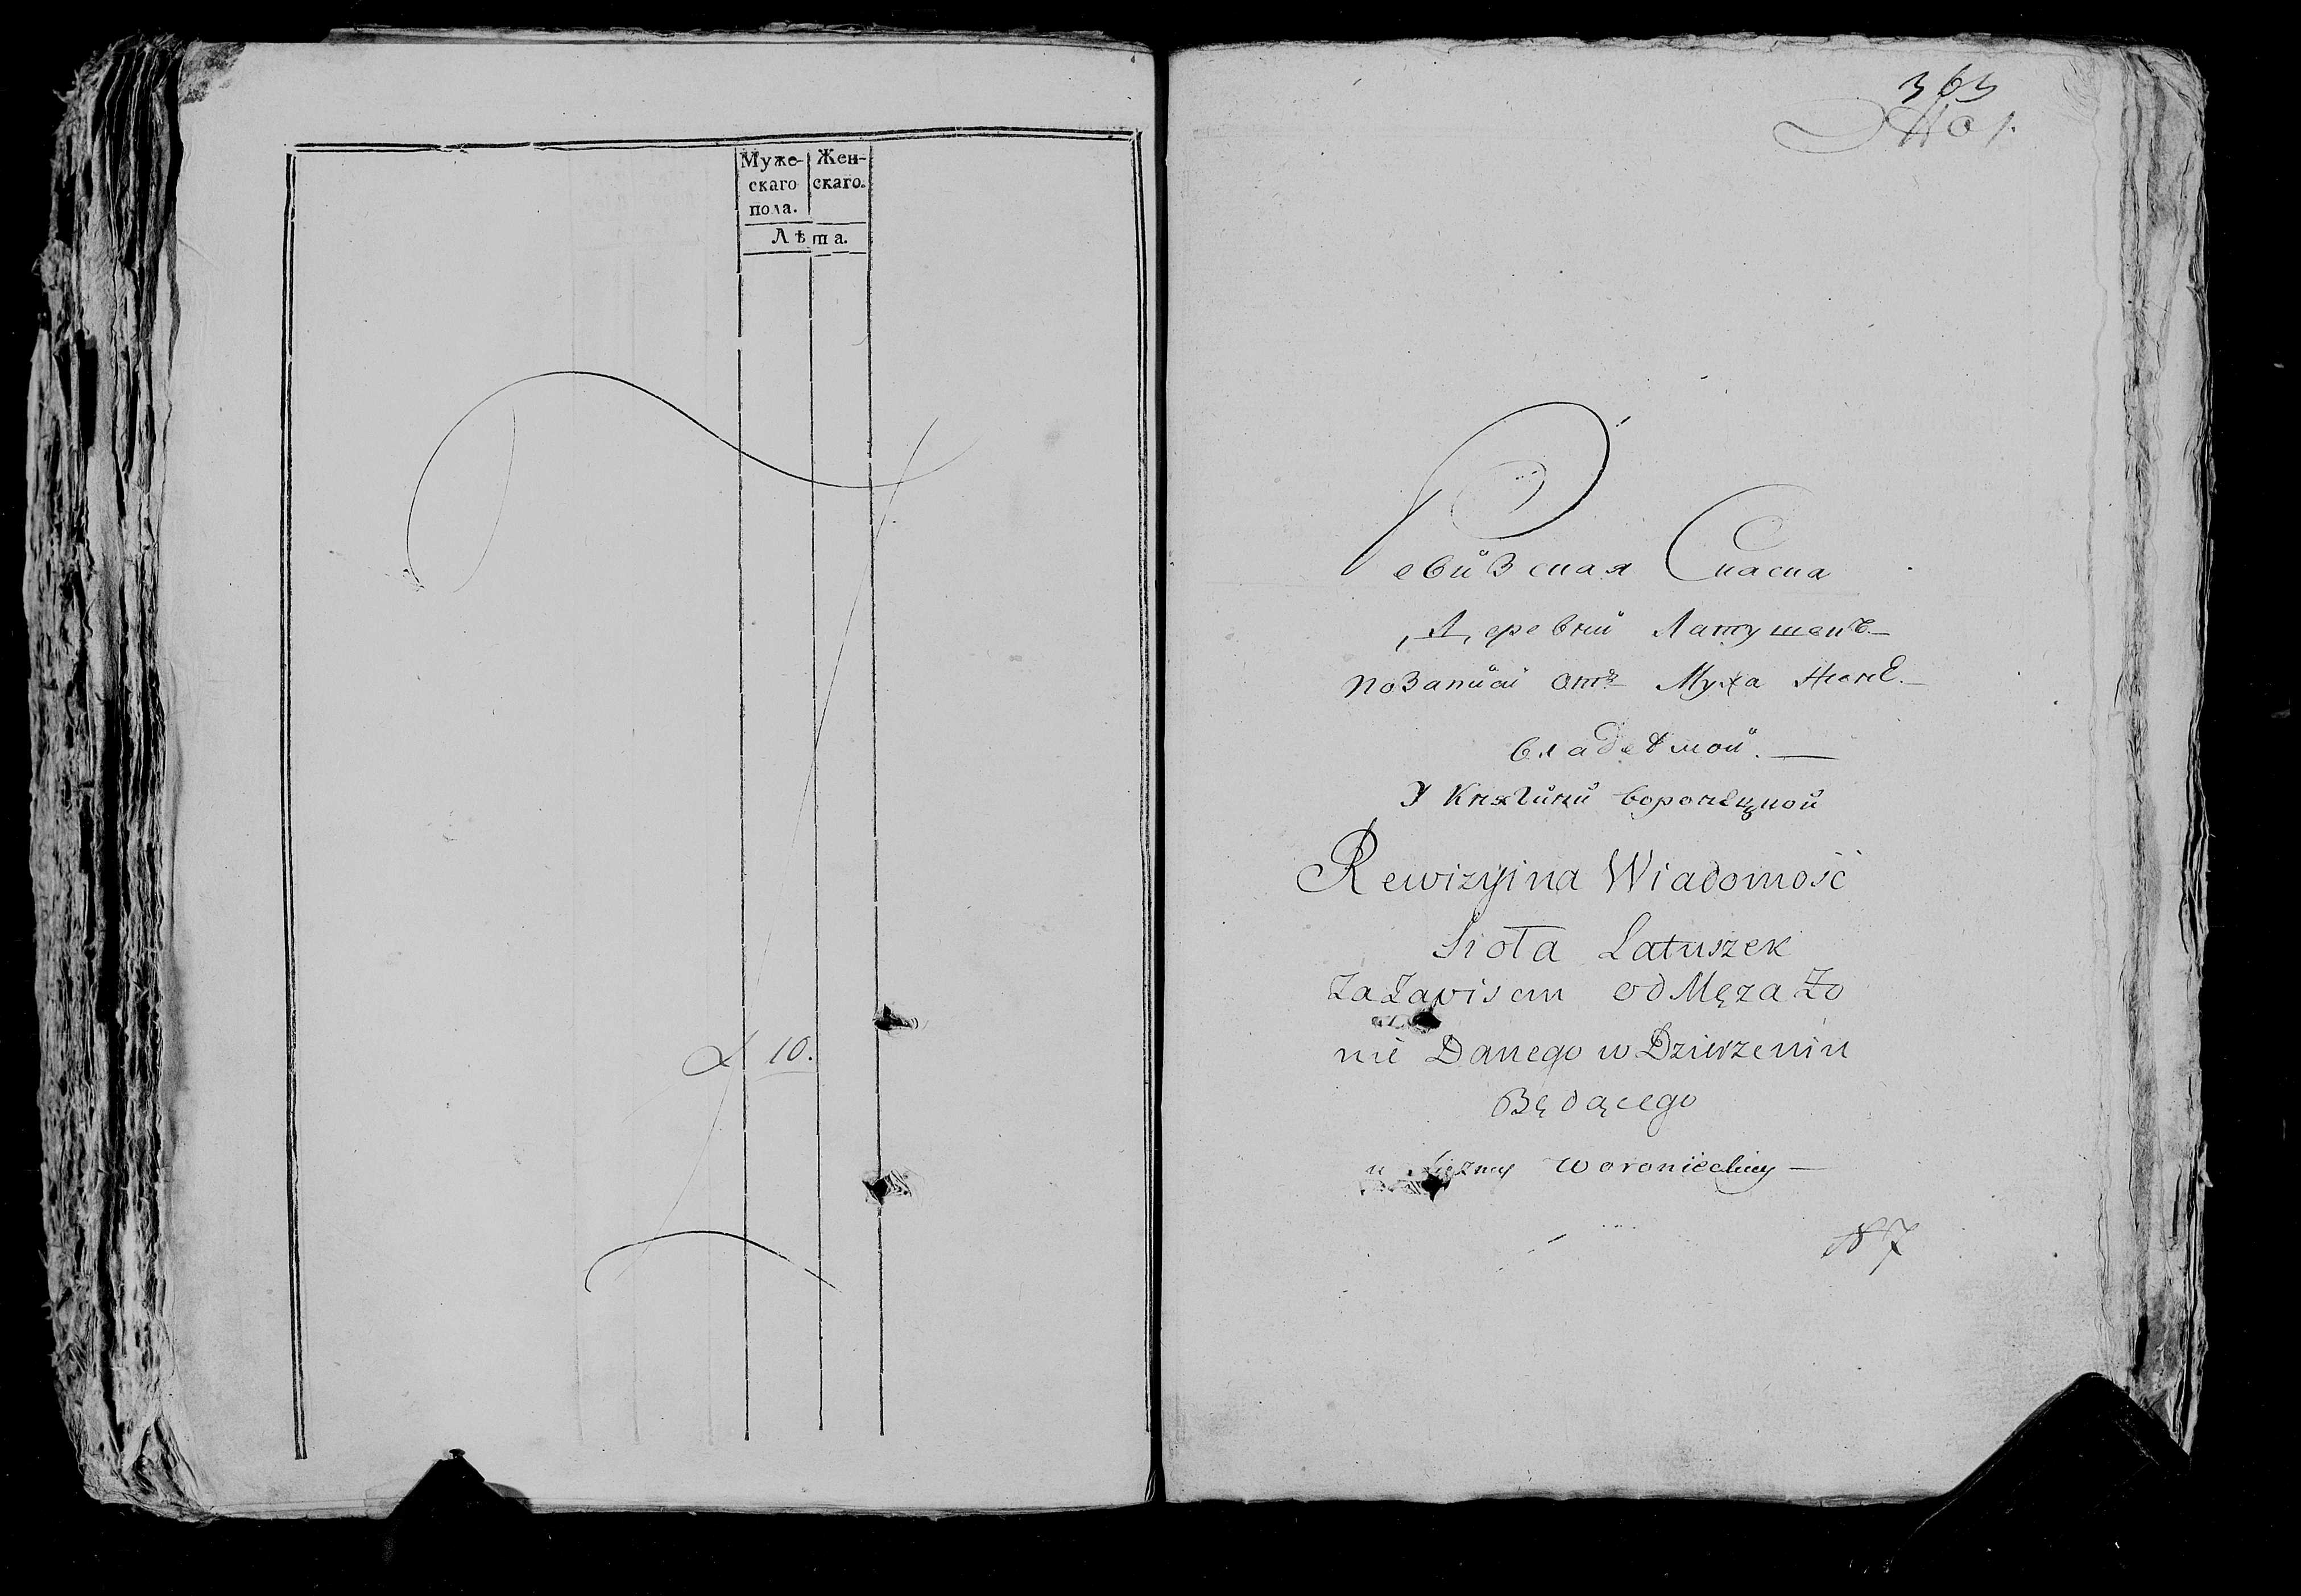 Муже-
скаго
пола.
Жен-
скаго.
Лѣта.
10.
363
Ревизская Скаска
Деревни Латушекъ
по Записи отъ Мужа Женѣ
владѣмой.
У Княгини Воронѣцкой
Rewizyina Wiadomość
Sioła Latuszek
Za Zapisem od Męza Zo
nie Danego w Dzierzeniu
Będącego
Woronieckiey
№ 7